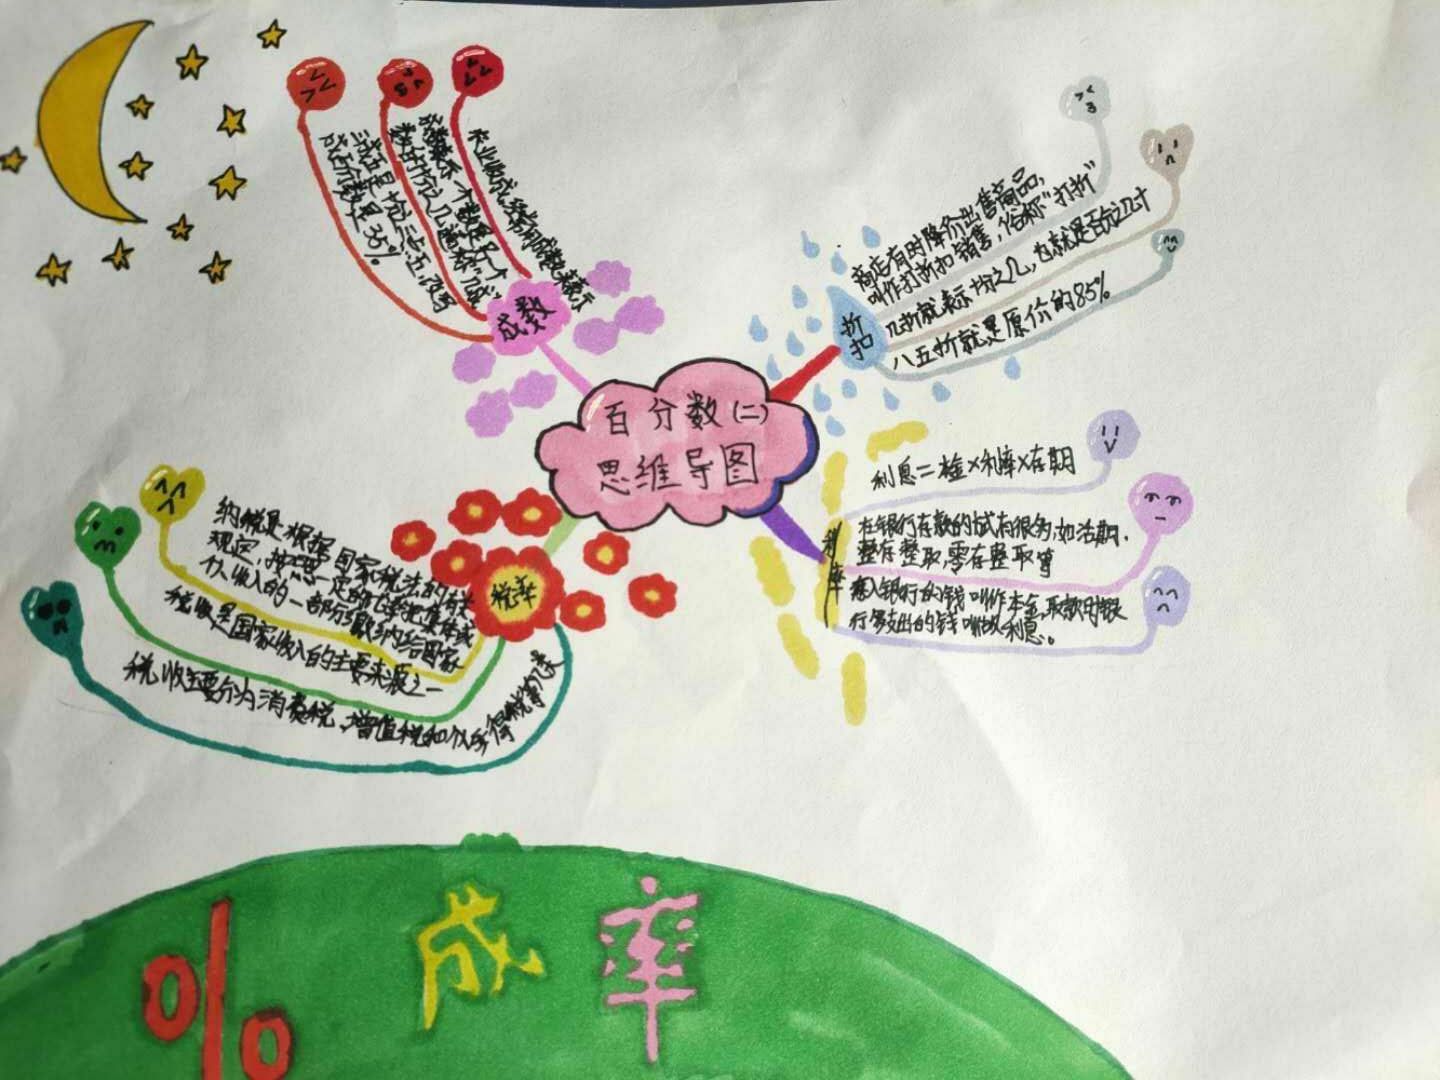 百分数(二)
思维导图
成数
农业收成,经常用成数来表示
成数表示一个数是另一个
数的十分之几,通称"几成"
三成五是十分之三点五,改写
成百分数是35%.
折扣
商店有时降价出售商品,
叫作打折扣销售,俗称"打折"
几折就表示十分之几,也就是百分之几十
八五折就是原价的85%
利率
利息=本金×利率×存期
在银行存款的方式有很多,如活期,
整存整取,零存整取等
存入银行的钱叫作本金,取款时银
行多支出的钱叫做利息。
税率
纳税是根据国家税法的有关
规定,按照一定的比率把集体或
个人收入的一部分缴纳给国家
税收是国家收入的主要来源之一
税收主要分为消费税,增值税和个人所得税等几类
%
成
率